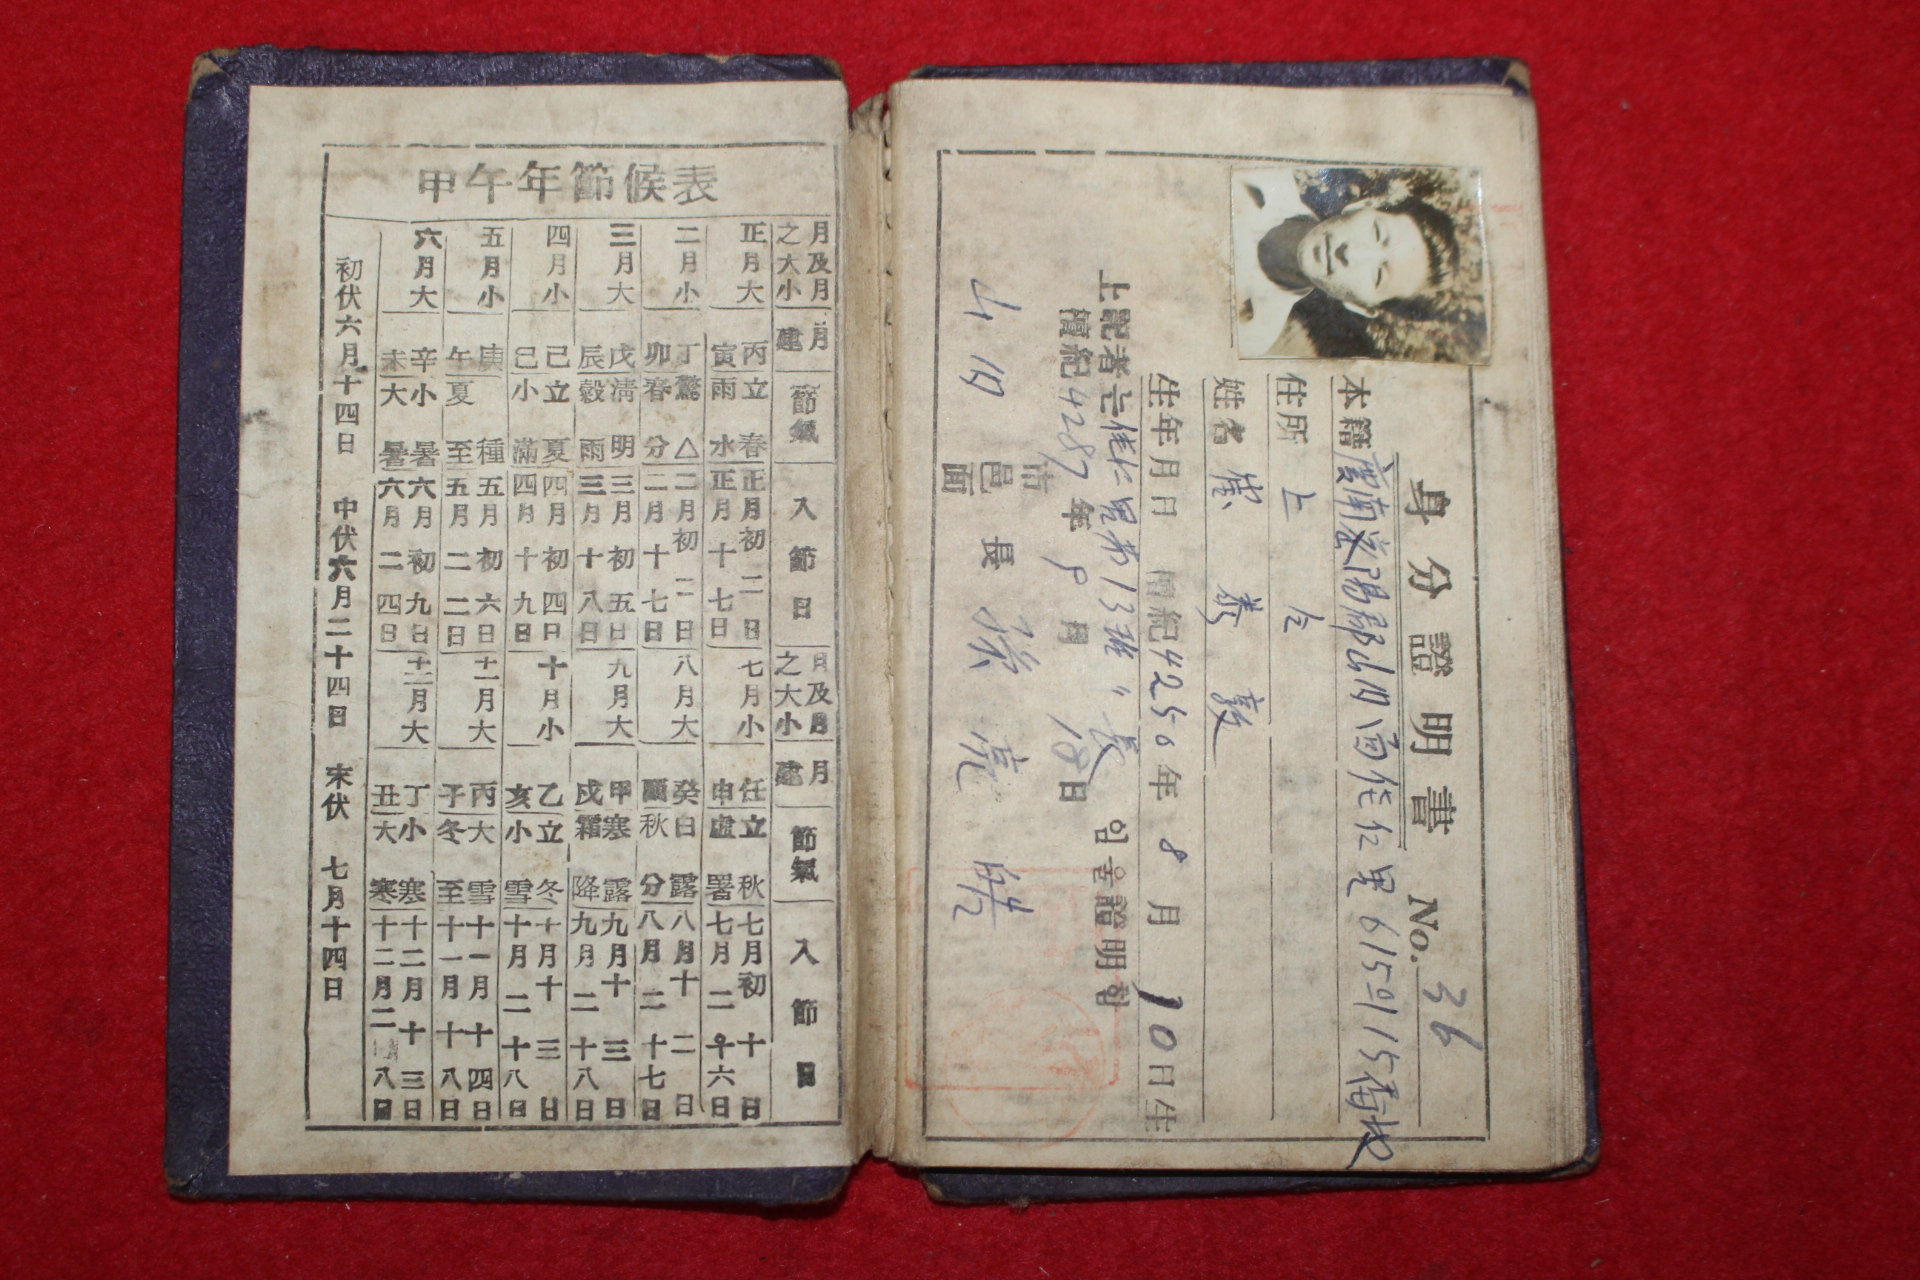 甲午年節候表
月及月之大小 月建 節氣 入節日 月及月之大小 月建 節氣 入節日
正月大 丙寅 立春 正月初二日 七月小 任申 立秋 七月初十日
雨水 正月十七日 處暑 七月二十六日
二月小 丁卯 驚△ 二月初二日 八月大 癸酉 白露 八月十二日
春分 二月十七日 秋分 八月二十七日
三月大 戊辰 清明 三月初五日 九月大 甲戌 寒露 九月十三日
穀雨 三月十八日 霜降 九月二十八日
四月小 己巳 立夏 四月初四日 十月小 乙亥 立冬 十月十三日
小滿 四月十九日 小雪 十月二十八日
五月小 庚午 種 五月初六日 十一月大 丙子 大雪 十一月十四日
夏至 五月二二日 冬至 十一月十八日
六月大 辛未 小暑 六月初九日 十二月大 丁丑 小寒 十二月十三日
大暑 六月二四日 大寒 十二月二八日
初伏六月十四日 中伏六月二十四日 末伏 七月十四日
身分證明書 No. 36
本籍 慶南密陽郡山內面佳仁里615의15番地
住所 上仝
姓名 崔泰敦
生年月日 檀紀4250年8月10日生
上記者는佳仁里第13班〃長임을證明함
檀紀4287年9月18日
山內 市邑面長 孫亮